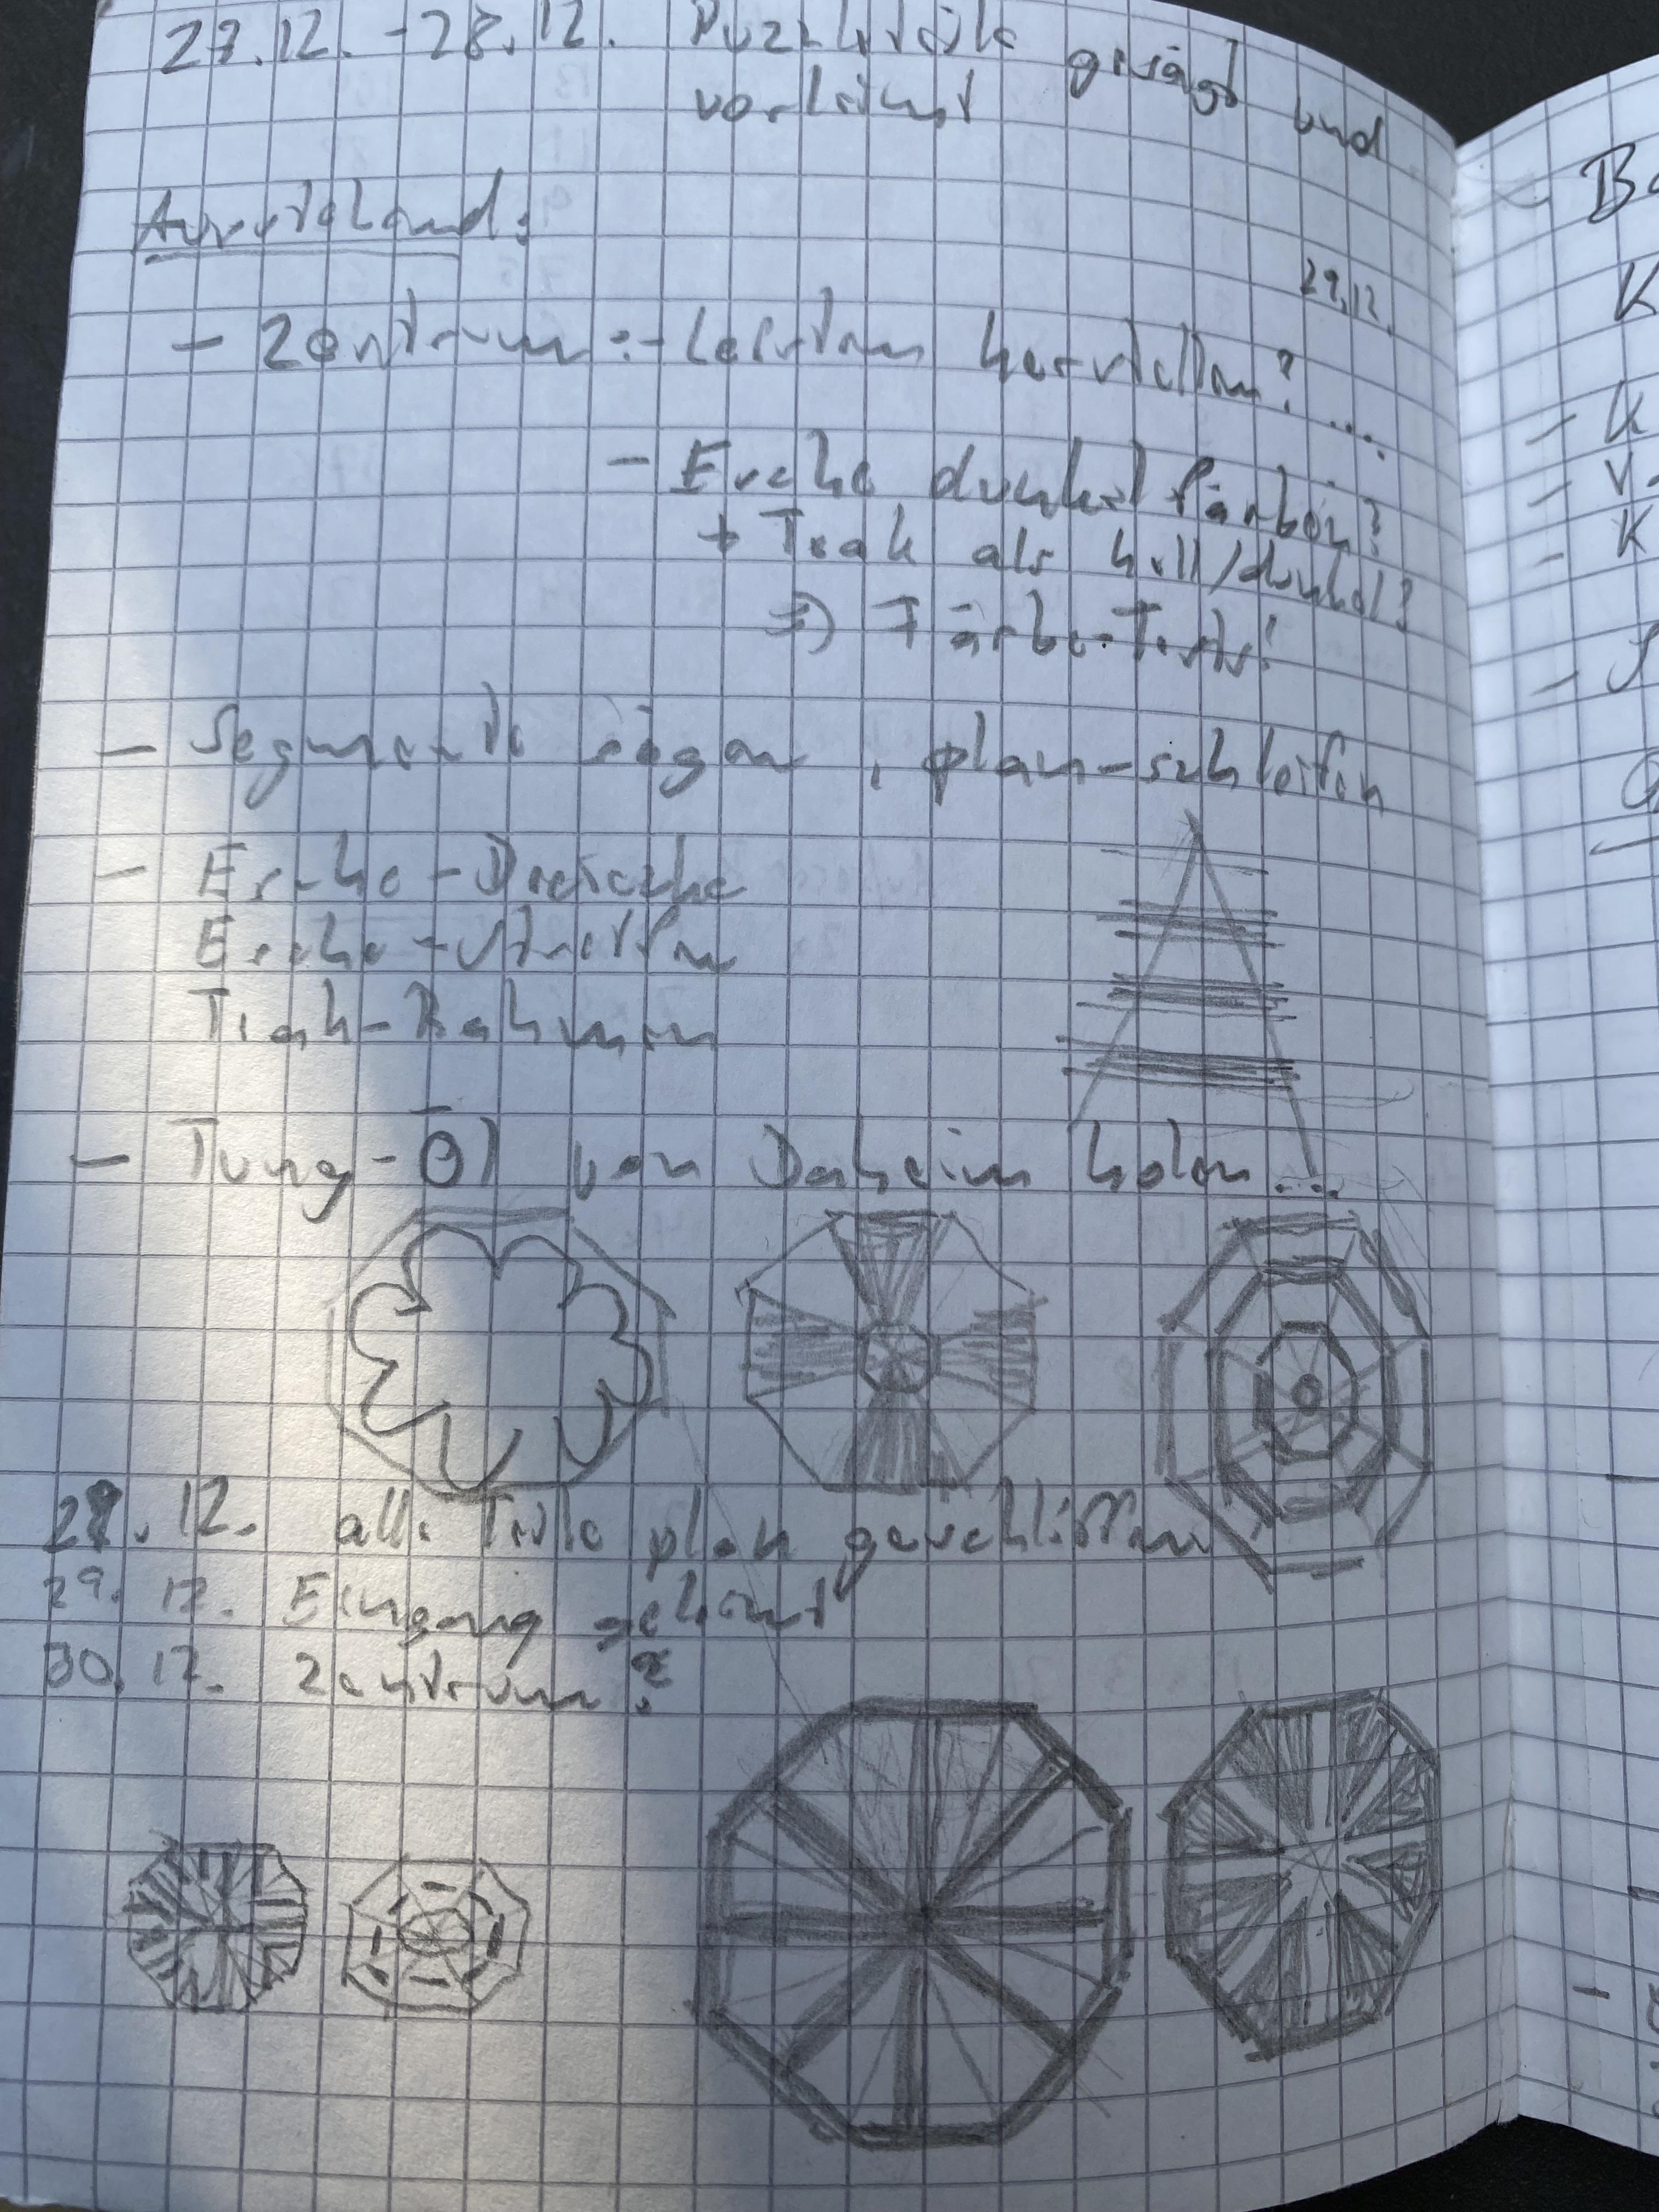 27.12. - 28.12. Puzzleteile gesägt und
verleimt
Ausstehend:
29.12.
- Zentrum: - Leisten herstellen? ...
- Esche dunkel färben?
+ Teak als hell/dunkel?
=> Färbe-Tests!
- Segmente sägen, plan-schleifen
- Esche-Dreiecke
Esche-Streifen
Teak-Rahmen
- Tung-Öl von Daheim holen...
28.12. alle Teile plan geschliffen
29.12. Eingang geleimt
30.12. Zentrum?
B
K
- K
- V
- K
-
-